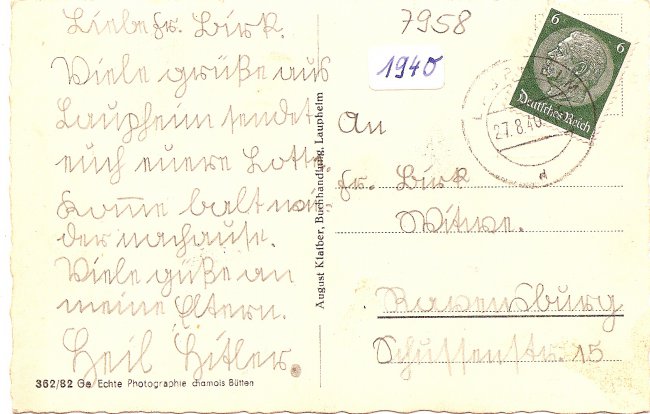 Liebe fr. Birk.
Viele grüße aus
Laupheim sendet
euch euere Lotte.
Komme balt wie
der nachause.
Viele güße an
meine Eltern.
Heil Hitler.
362/82 Echte Photographie chamois Bütten
August Klaiber, Buchhandlung, Laupheim
7958
1940
6 6
Deutsches Reich
27.8.40
d
An
fr. Birk
Witwe.
Ravensburg
Schussenstr. 15